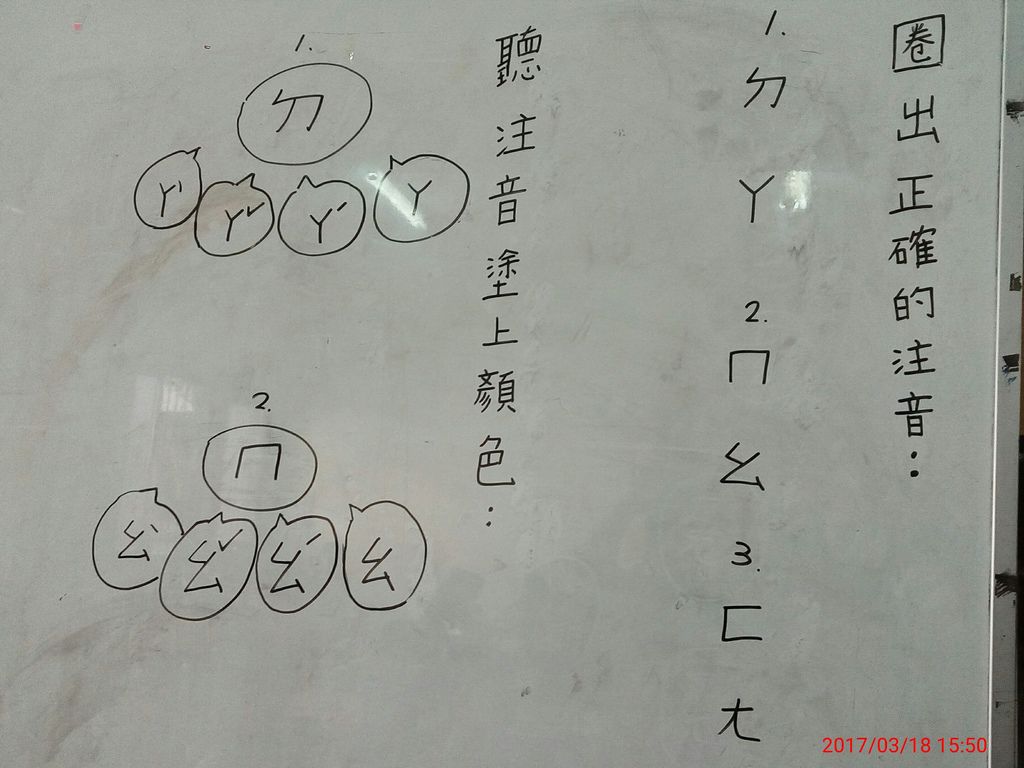 圈出正確的注音：
1.
ㄉ
ㄚ
2.
ㄇ
ㄠ
3.
ㄈ
ㄤ
聽注音塗上顏色：
1.
ㄉ
ㄚˋ ㄚˇ ㄚˊ ㄚ
2.
ㄇ
ㄠˋ ㄠˇ ㄠˊ ㄠ
2017/03/18 15:50